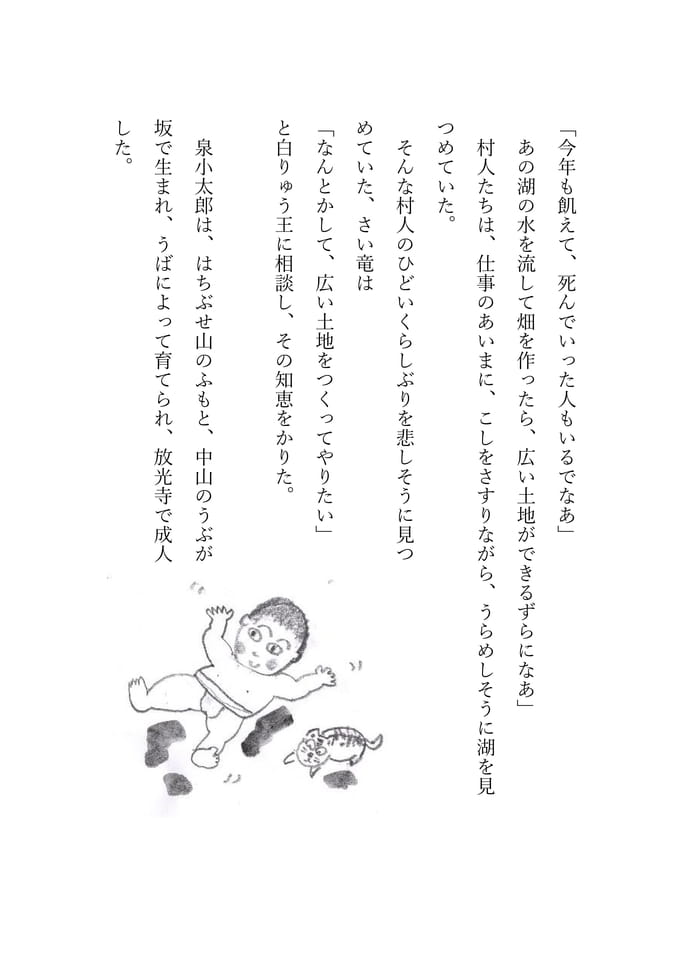 「今年も飢えて、死んでいった人もいるでなあ」
あの湖の水を流して畑を作ったら、広い土地ができるずらになあ」
村人たちは、仕事のあいまに、こしをさすりながら、うらめしそうに湖を見
つめていた。
そんな村人のひどいくらしぶりを悲しそうに見つ
めていた、さい竜は
「なんとかして、広い土地をつくってやりたい」
と白りゅう王に相談し、その知恵をかりた。
泉小太郎は、はちぶせ山のふもと、中山のうぶが
坂で生まれ、うばによって育てられ、放光寺で成人
した。